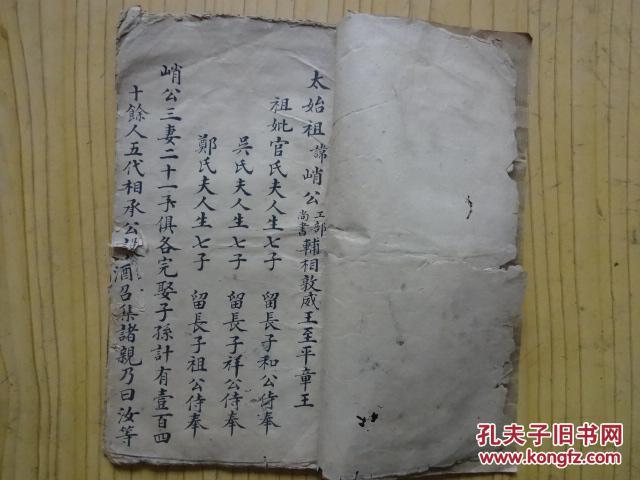 太始祖諱峭公工部尚書輔相敦威王至平章王
祖妣官氏夫人生七子 留長子和公侍奉
吳氏夫人生七子 留長子祥公侍奉
鄭氏夫人生七子 留長子祖公侍奉
峭公三妻二十一子俱各完娶子孫計有壹百四
十餘人五代相承公 酒召集諸親乃曰汝等
孔夫子旧书网
www.kongfz.com